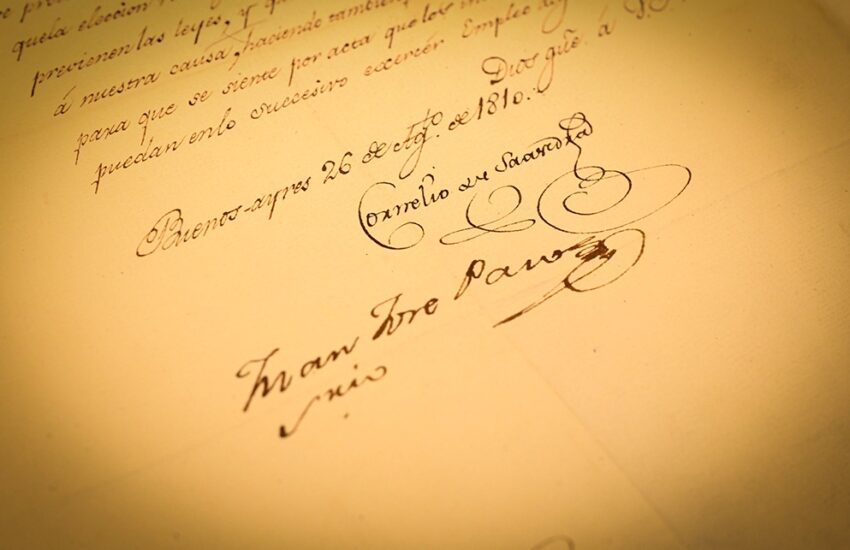 quela eleccion
previenen las leyes, y
á nuestra causa, haciendo tambien
para que se siente por acta que los
puedan enlo succesivo exercér Empleo
Dios gue. á V.S.
Buenos-ayres 26 de Agto. de 1810.
Cornelio de Saavedra
Juan Jose Passo
Srio